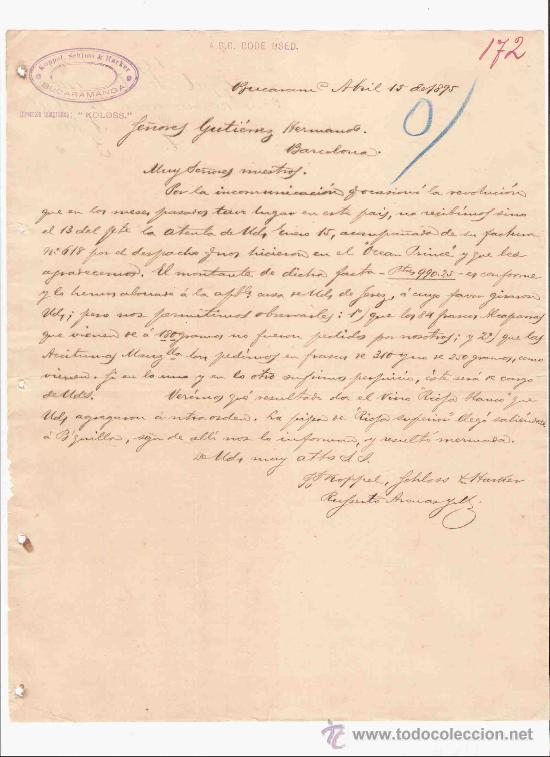 A.B.C. CODE USED.
172
Koppel, Schloss & Harker
BUCARAMANGA
"KOLOSS."
Bucaramª Abril 15 de 1895
Señores Gutiérrez Hermanos.
Barcelona.
Muy Señores nuestros.
Por la incomunicación q' ocasionó la revolución
que en los meses pasados tuvo lugar en este pais, no recibimos sino
el 13 del pte la atenta de Uds, enero 15, acompañada de su factura
Nº 618 por el despacho q' nos hicieron en el "Ocean Prince" y que les
agradecemos. El montante de dicha facta - Ptas 990.25 - es conforme
y lo hemos abonado á la casa de Uds de Jerez, á cuyo favor giraron
Uds; pero nos permitimos observarles: 1º) que los 84 frascos Alcaparras
que vienen de á 180 gramos no fueron pedidos por nosotros; y 2º) que las
Aceitunas Manzlla las pedimos en frascos de 310 y no de 250 gramos, como
vienen. Si en lo uno y en lo otro sufrimos perjuicio, éste será de cargo
de Uds. Veremos qué resultado da el Vino "Rioja blanco" que
Uds agregaron á ntra orden. La pipa de "Rioja superior" llegó saliéndose
á B'quilla, segn de allí nos lo informan, y resultó mermada.
De Uds muy atts S.S.
Koppel, Schloss & Harker
www.todocoleccion.net